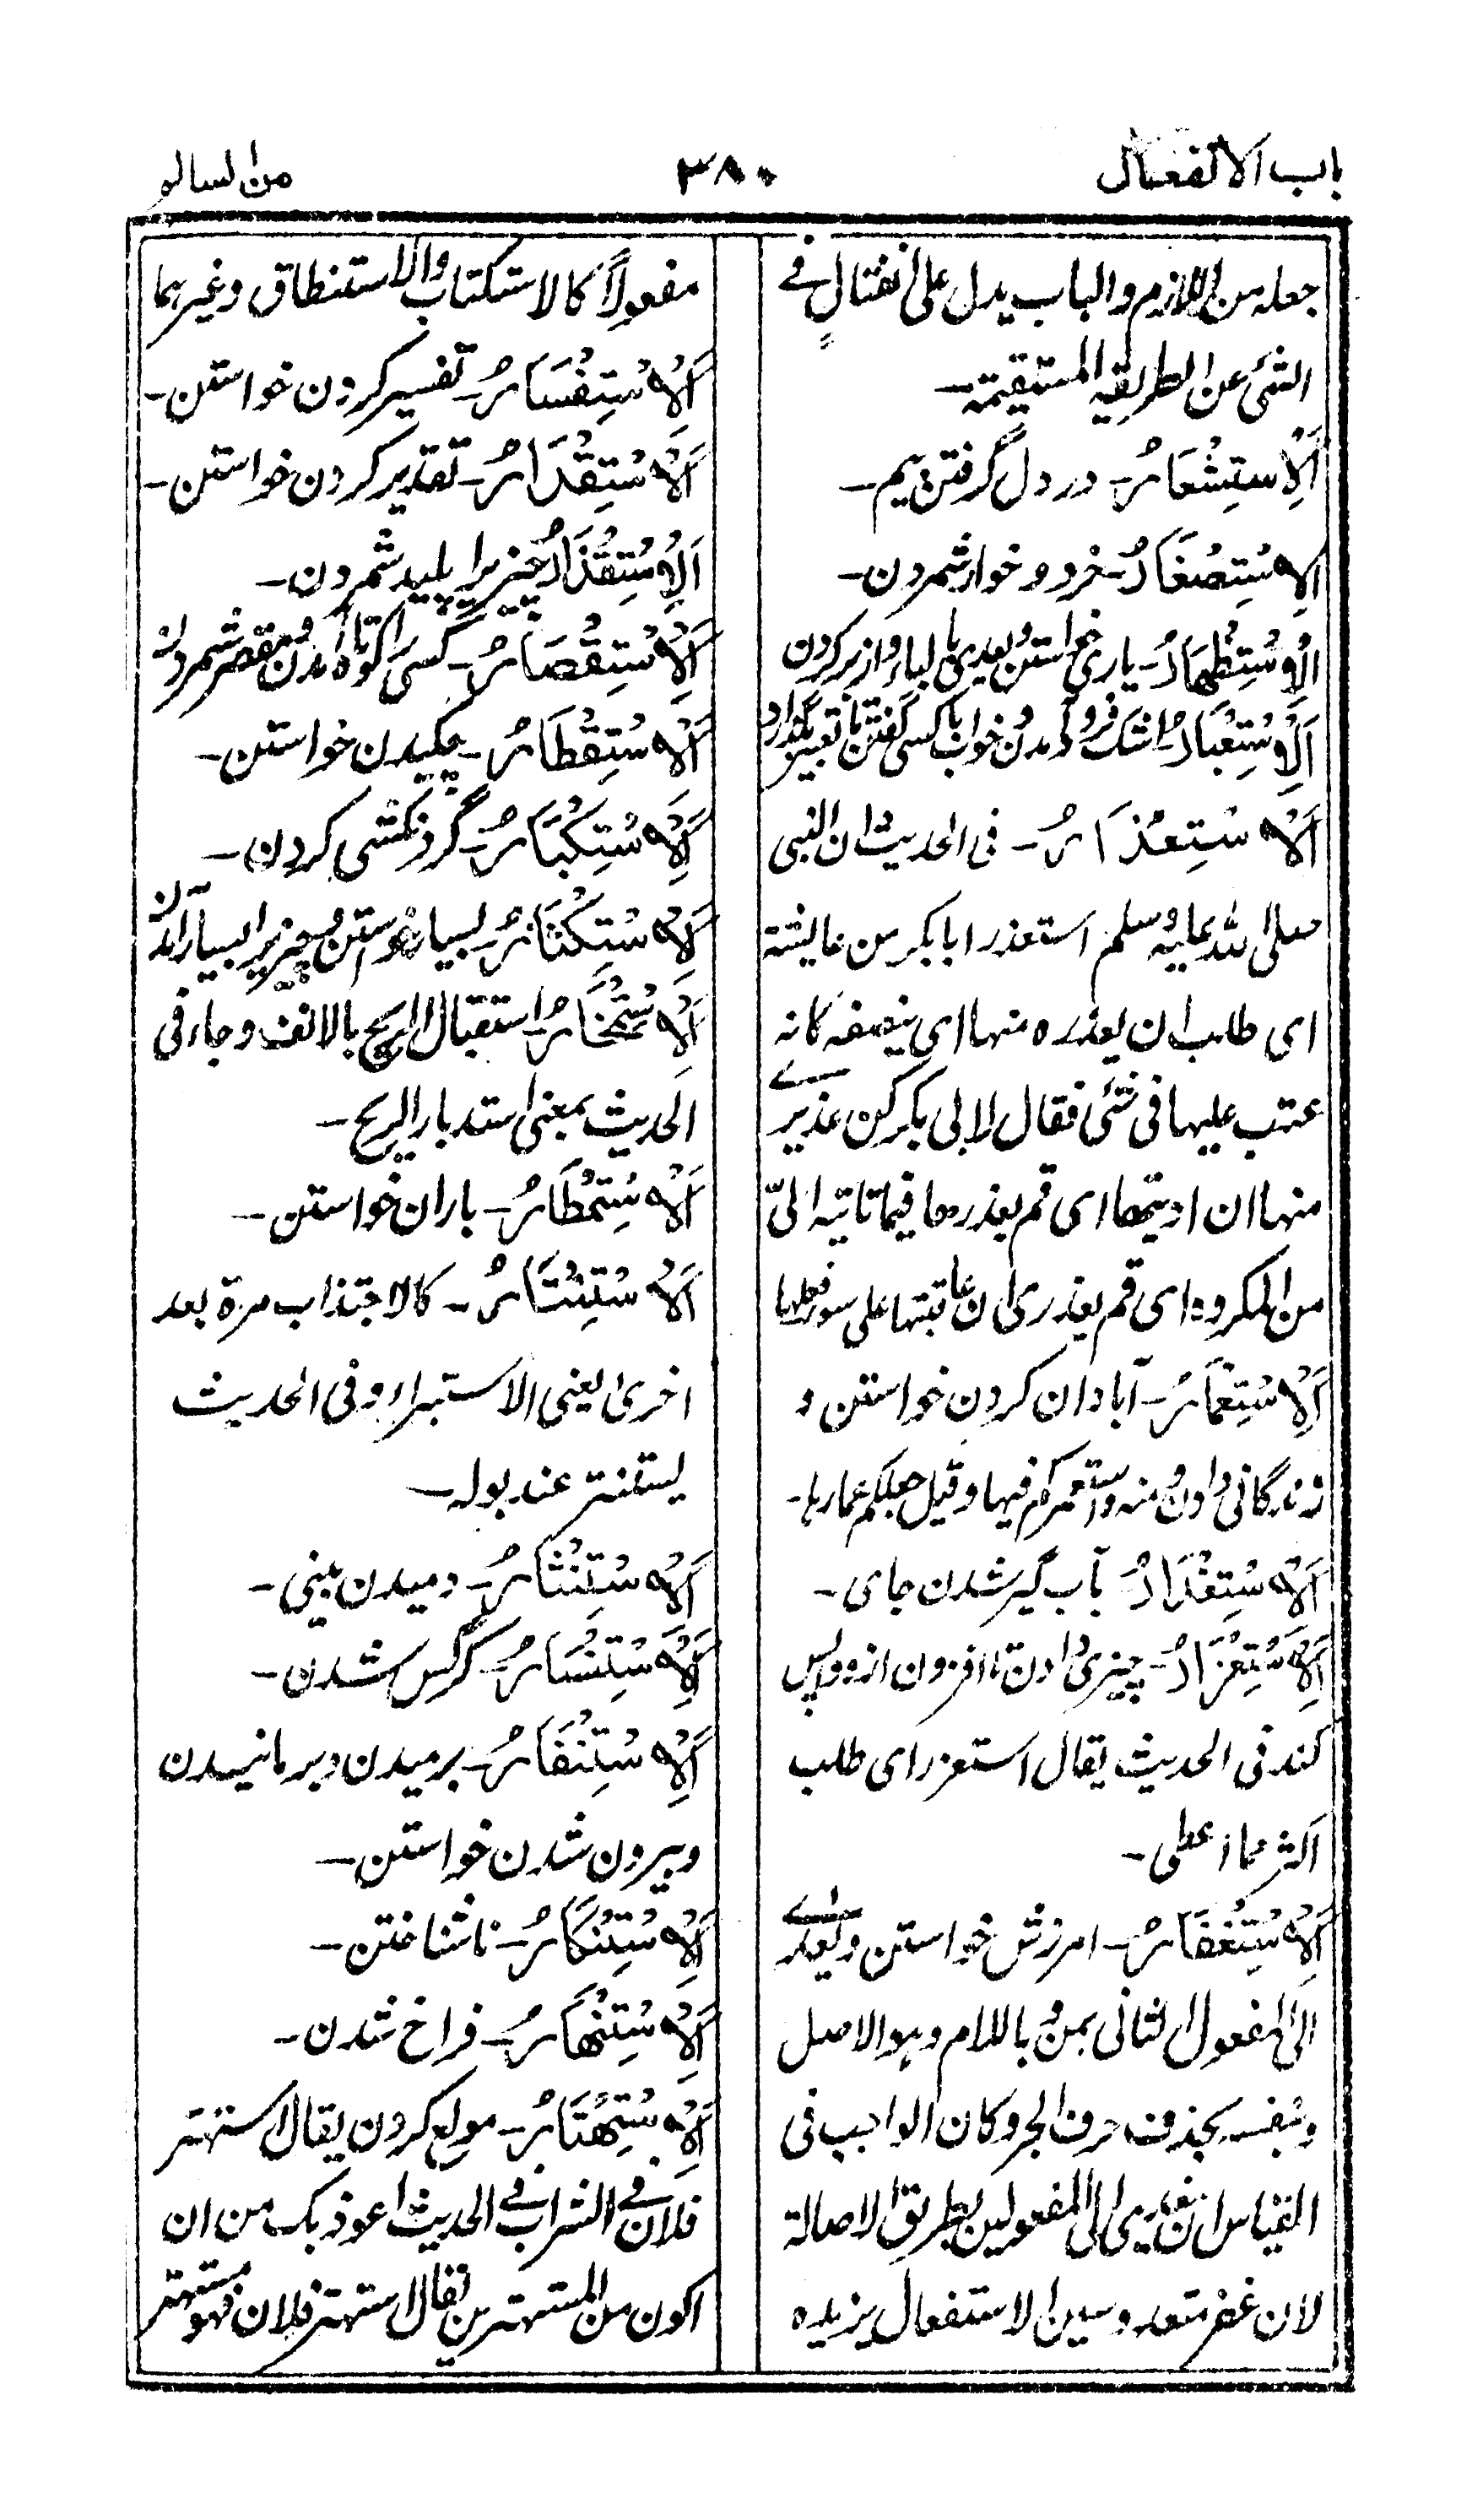 باب الانفعال
۳۸۰
من السالم
جعله من اللازم والباب يدل على انفتالٍ فے
الشئ عن الطريقيه المستقيمة۔
اَلْاِسْتِشْعَارُ۔ در دل گرفتن بيم۔
الاِسْتِصْغَارُ۔ خرد و خوار شمردن۔
الْاِسْتِظْهَارُ۔ يارى خواستن ويعدى بالباء واز بر كردن
اَلْاِسْتِعْبَارُ۔ اشك فرود آمدن وخواب باكسى گفتن تا تعبير بگذارد
اَلْاِسْتِعْذَارُ۔ فى الحديث ان النبى
صلى الله عليه وسلم استعذر ابا بكر من عايشة
اى طلب ان يعذره منها اى ينصفه كانه
عتب عليها فى شئ فقال لابى بكر كن عذيرے
منها ان ادبتها اى قم بعذرها فيما تاتيه الىّ
من المكروه اى قم بعذرى ان عاتبتها على سوء فعلها
اَلْاِسْتِعْمَارُ۔ آبادان كردن خواستن و
زندگانى دادن ومنه واستعمركم فيها وقيل جعلكم عمارها۔
اَلْاِسْتِغْدَارُ۔ آب گير شدن جاى۔
اَلْاِسْتِغْزَارُ۔ چيزى دادن تا افزون ازو واپس
كند فى الحديث يقال استغزر اى طلب
اكثر مما اعطى۔
اَلْاِسْتِغْفَارُ۔ امرزش خواستن ويعدے
الى المفعول الثانى بمن وباللام وهو الاصل
وبنفسه بحذف حرف الجر وكان الواجب فى
القياس ان يعدى الى المفعولين بطريق الاصالة
لان غفر متعد وسين الاستفعال يزيده
مفعولًا كالاستكتاب والاستنطاق وغيرهما
اَلْاِسْتِفْسَارُ۔ تفسير كردن خواستن۔
اَلْاِسْتِقْدَارُ۔ تقدير كردن خواستن۔
اَلْاِسْتِقْذَارُ۔ چيزيرا پليد شمردن۔
اَلْاِسْتِقْصَارُ۔ كسى را كوتاه آمدن ومقصر شمردن
اَلْاِسْتِقْطَارُ۔ چكيدن خواستن۔
اَلْاِسْتِكْبَارُ۔ گردنكشى كردن۔
اَلْاِسْتِكْثَارُ۔ بسيار خواستن وچيزيرا بسيار آمدن
اَلْاِسْتِمْخَارُ۔ استقبال الريح بالانف وجاء فى
الحديث بمعنى استدبار الريح۔
اَلْاِسْتِمْطَارُ۔ باران خواستن۔
اَلْاِسْتِنْتَارُ۔ كالاجتذاب مرة بعد
اخرى يعنى الاستبراء وفى الحديث
ليستنتر عند بوله۔
اَلْاِسْتِنْثَارُ۔ دميدن بينى۔
اَلْاِسْتِنْسَارُ۔ كرگس شدن۔
اَلْاِسْتِنْفَارُ۔ برميدن وبرمانيدن
وبيرون شدن خواستن۔
اَلْاِسْتِنْكَارُ۔ ناشناختن۔
اَلْاِسْتِنْهَارُ۔ فراخ شدن۔
اَلْاِسْتِهْتَارُ۔ مولع كردن يقال استهتر
فلان فے الشراب فے الحديث اعوذ بك من ان
اكون من المستهترين يقال استهتر فلان فهو مستهتر